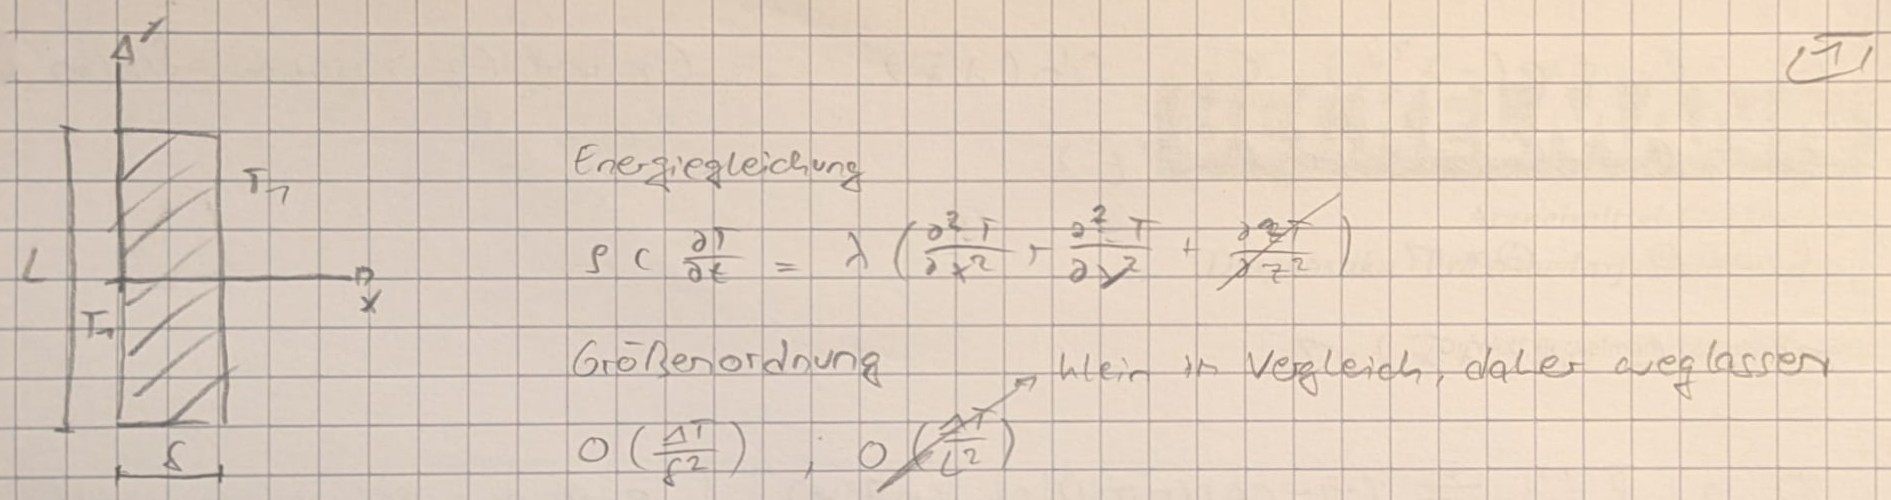 y
L
T₁
T₁
x
δ
Energiegleichung
ρ c ∂T/∂t = λ ( ∂²T/∂x² + ∂²T/∂y² + ∂²T/∂z² )
Größenordnung
klein in Vergleich, daher weglassen
O ( ΔT/δ² ) ; O ( ΔT/L² )